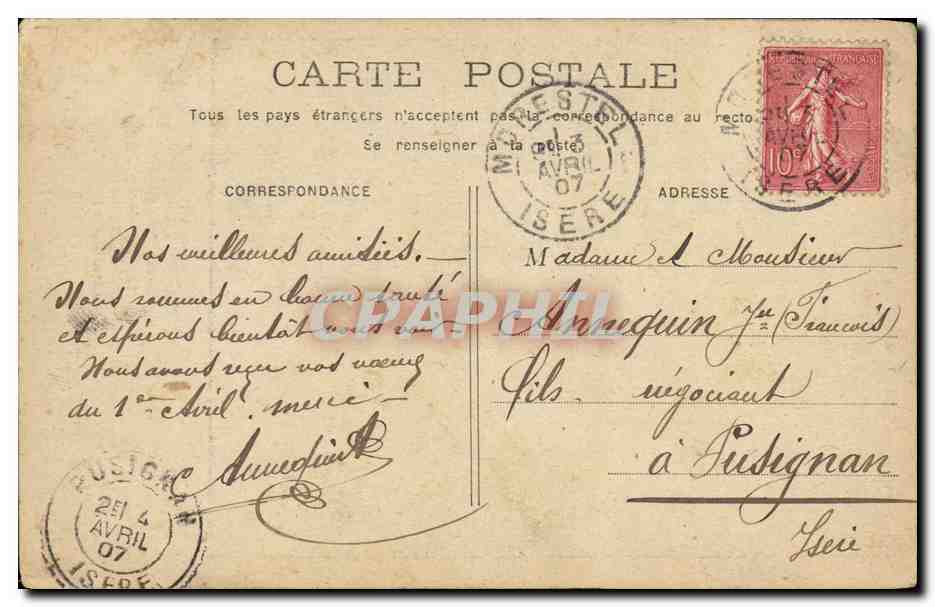 CARTE POSTALE
Tous les pays étrangers n'acceptent pas la correspondance au recto.
Se renseigner à la poste
CORRESPONDANCE
ADRESSE
REPUBLIQUE FRANÇAISE
10c
MORESTEL
3
AVRIL
07
ISERE
Nos meilleures amitiés. —
Nous sommes en bonne santé
et espérons bientôt vous voir
Nous avons reçu vos vœux
du 1er Avril. merci —
Annequin
Madame et Monsieur
Annequin Jne (François)
fils négociant
à Pusignan
Isère
PUSIGNAN
4
AVRIL
07
ISERE
CPAPHIL